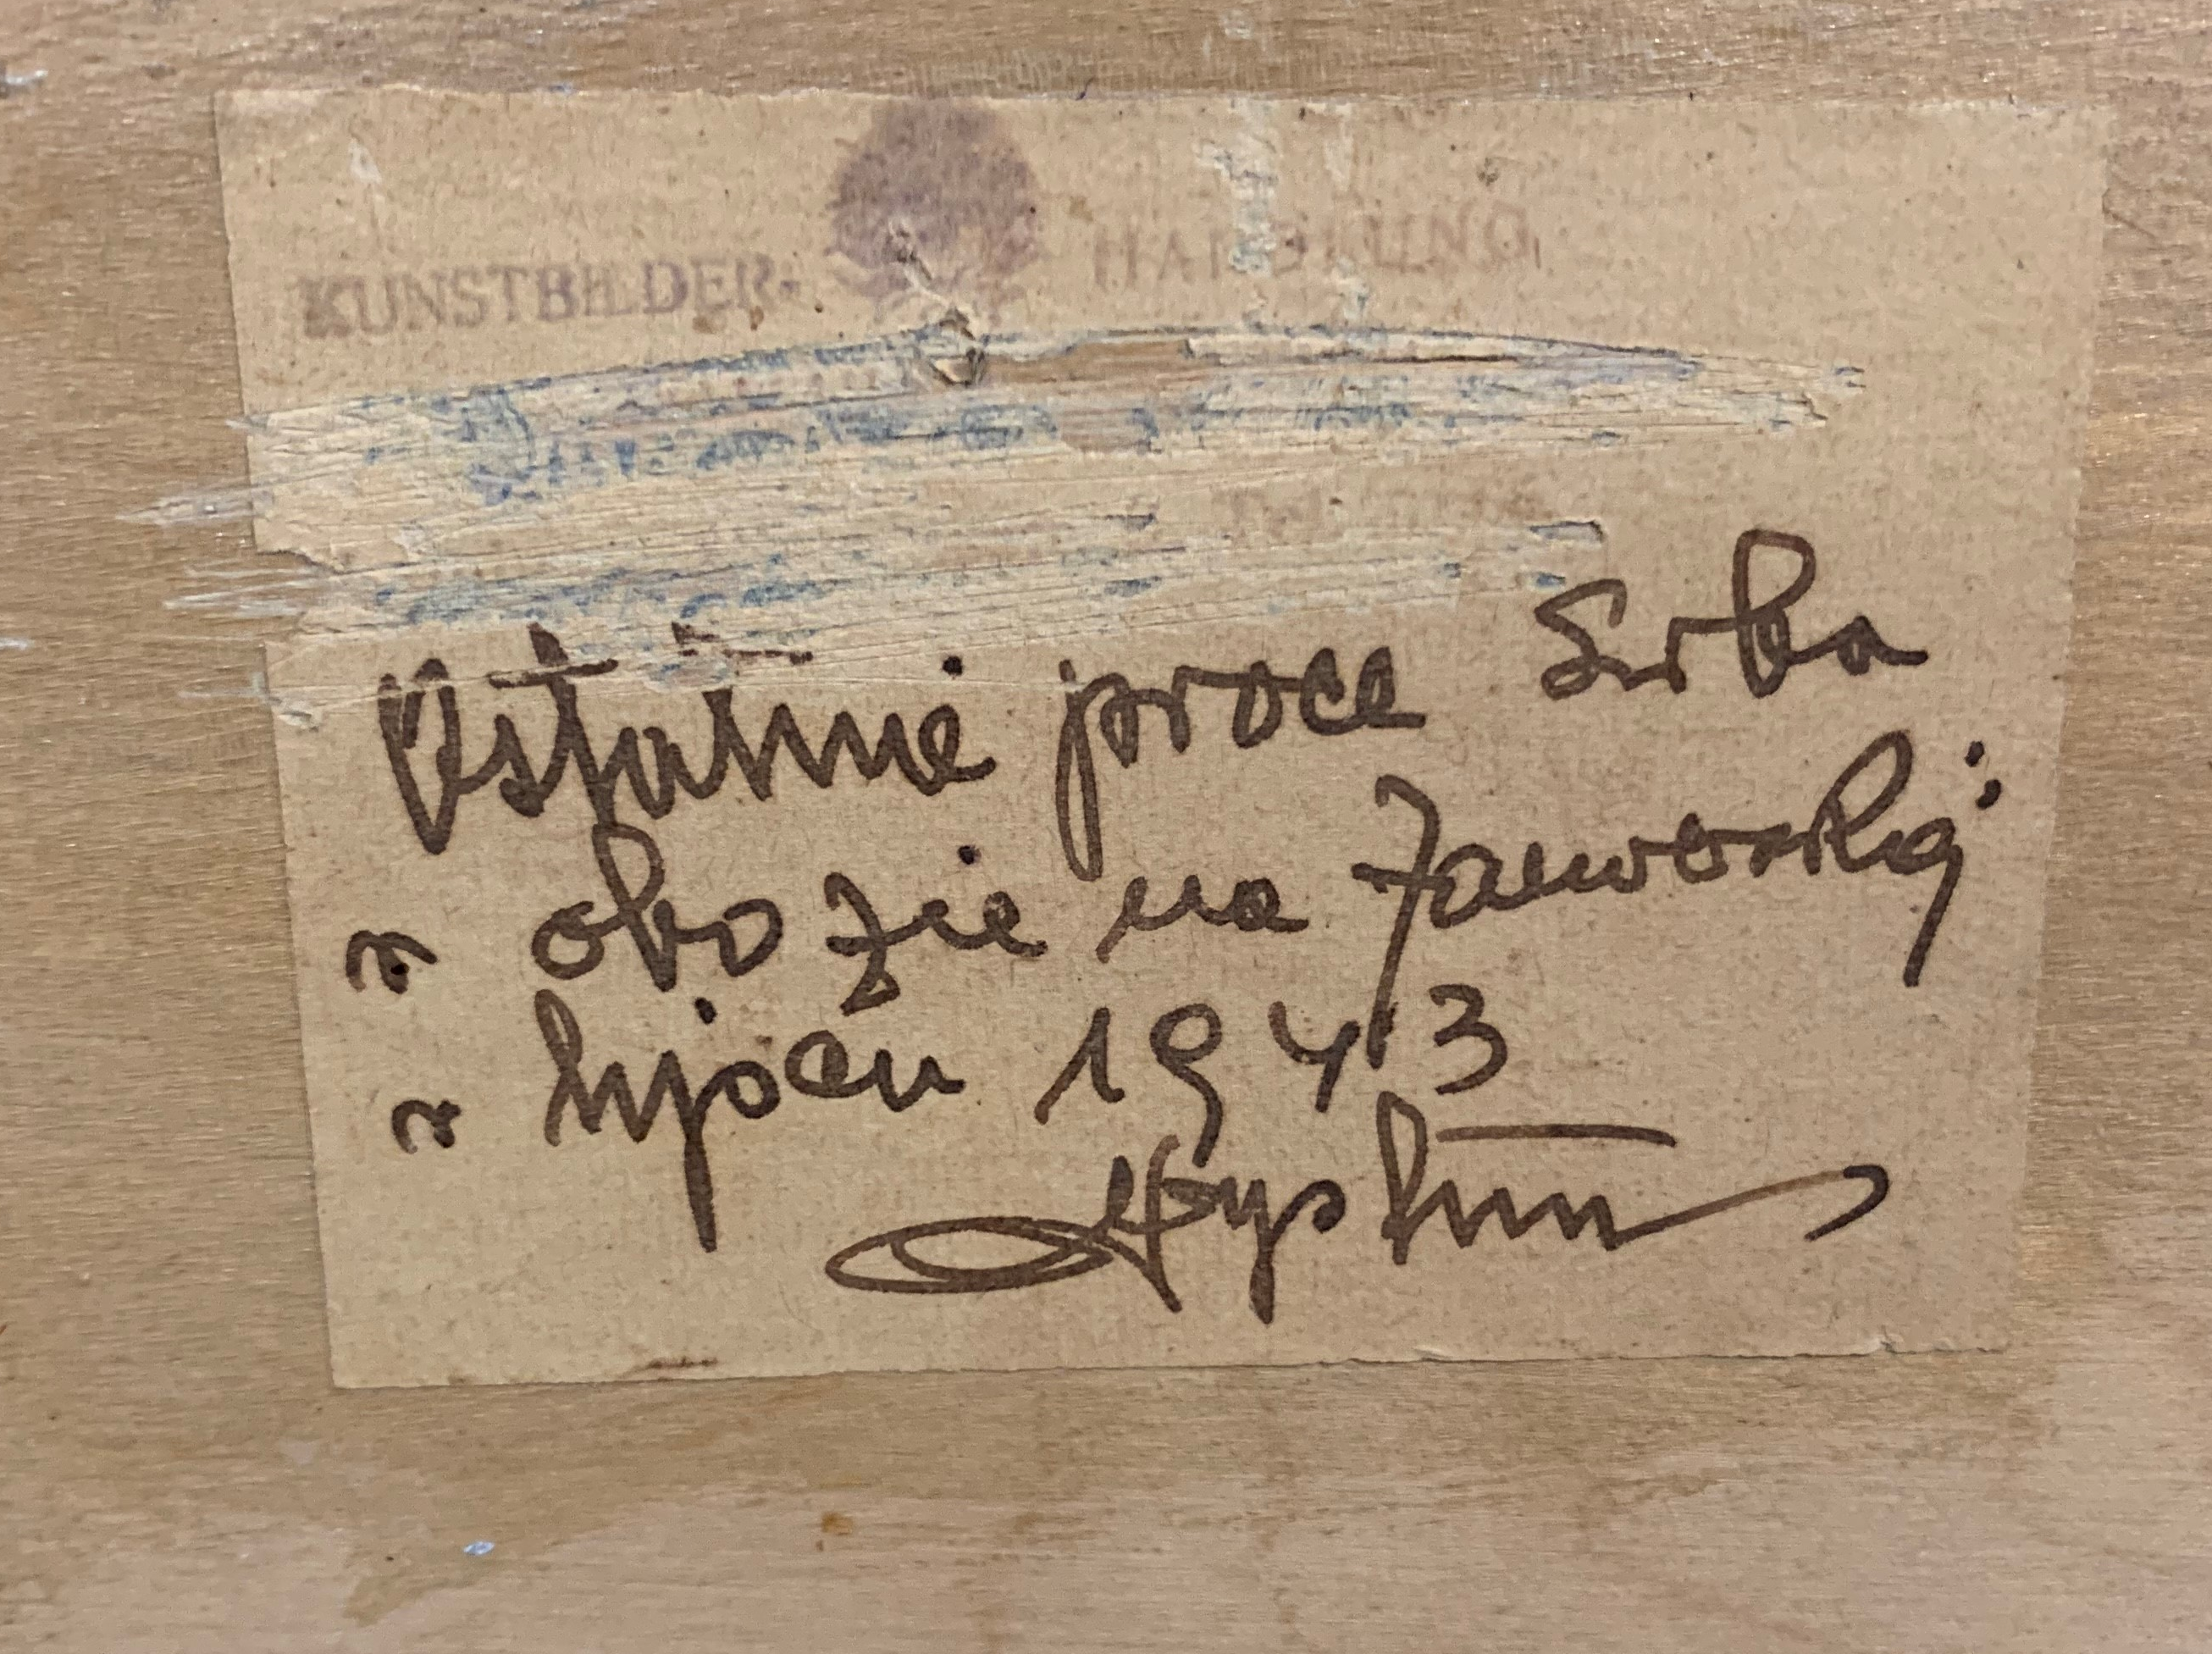 KUNSTBILDER- HANDLUNG
Ostatnie prace Serba
w obozie na Zaworską:
w lipcu 1943